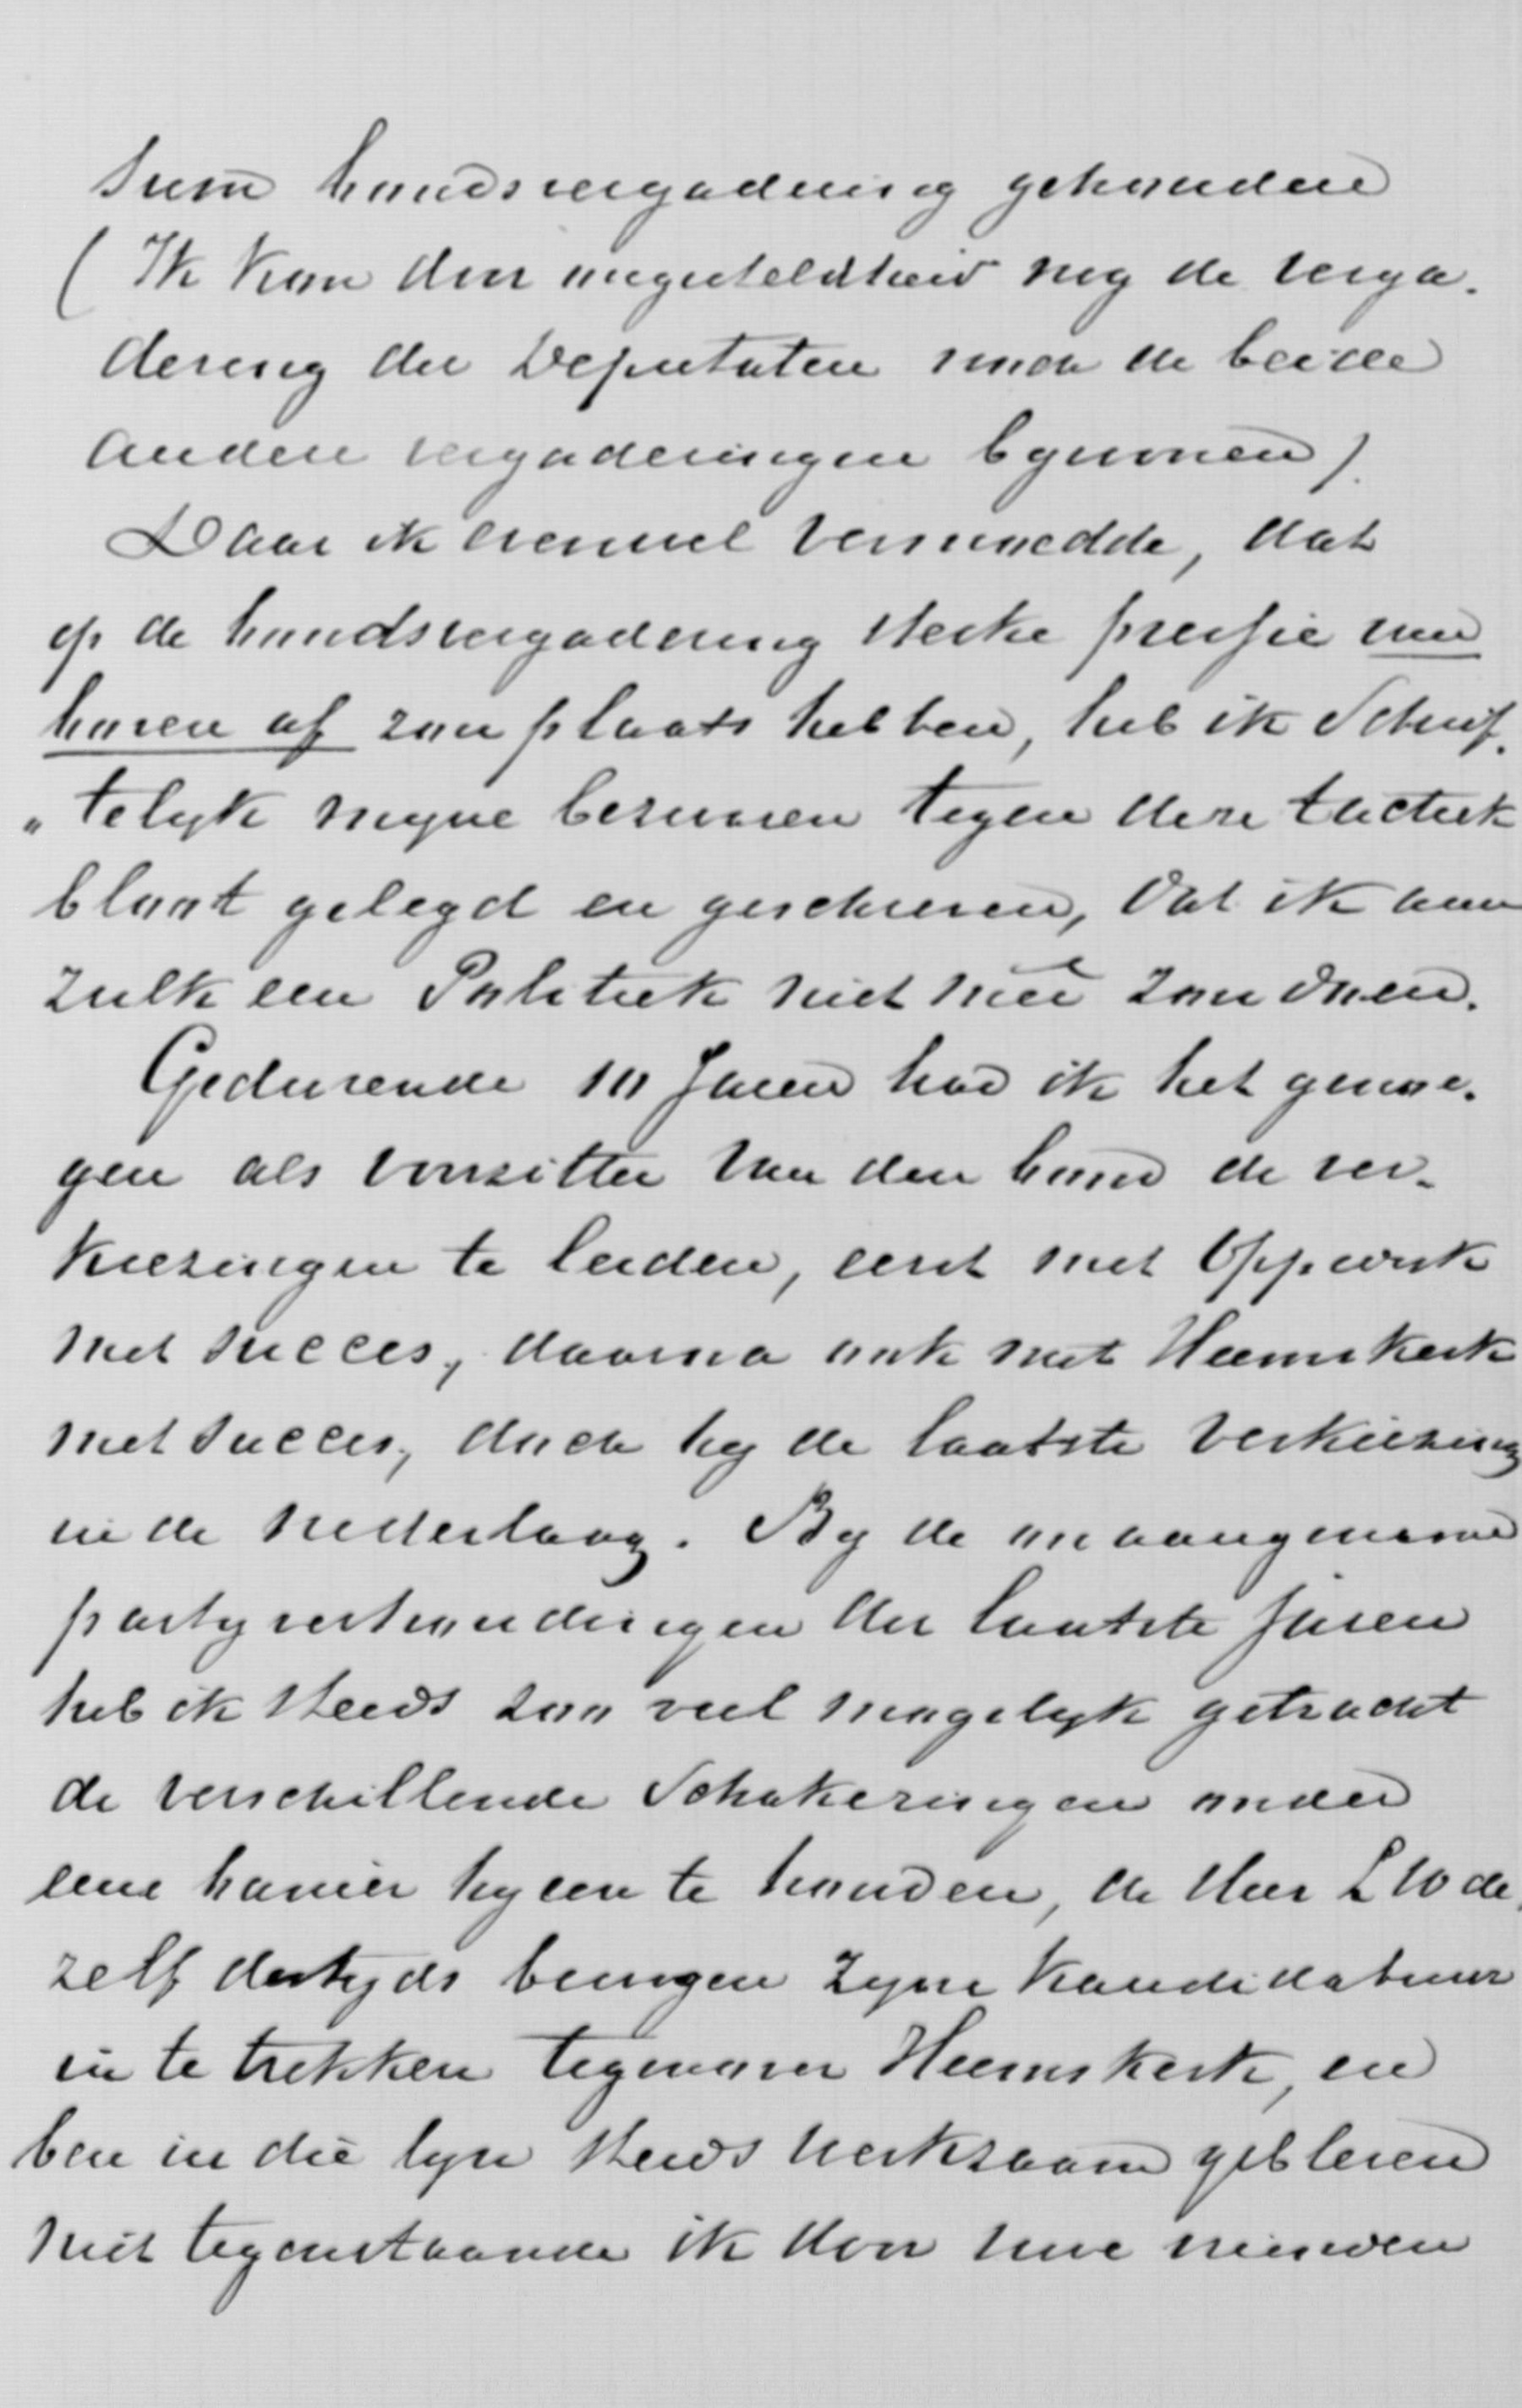 bondsvergadering gehouden
(Ik kon door ongesteldheid nog de verga-
dering der Deputaten noch de beide
andere vergaderingen bywonen).
Daar ik evenwel vermoedde, dat
op de bondsvergadering sterke pressie van
boven af zou plaats hebben, heb ik Schrif-
"telyk myne bezwaren tegen deze tactiek
bloot gelegd en geschreven, dat ik aan
zulk een Politiek niet meê zou doen.
Gedurende 10 Jaren had ik het genoe-
gen als voorzitter van den bond de ver-
kiezingen te leiden, eerst met Oppedyk
met succes, daarna ook met Heemskerk
met succes, doch by de laatste verkiezing
in de nederlaag. By de onaangename
partyverhoudingen der laatste Jaren
heb ik steeds zoo veel mogelyk getracht
de verschillende Schakeringen onder
eene banier byeen te houden, de Heer
zelf destyds bewogen zyne kandidatuur
in te trekken tegenover Heemskerk, en
ben in die lyn steeds werkzaam gebleven
niet tegenstaande ik door twee nieuwen